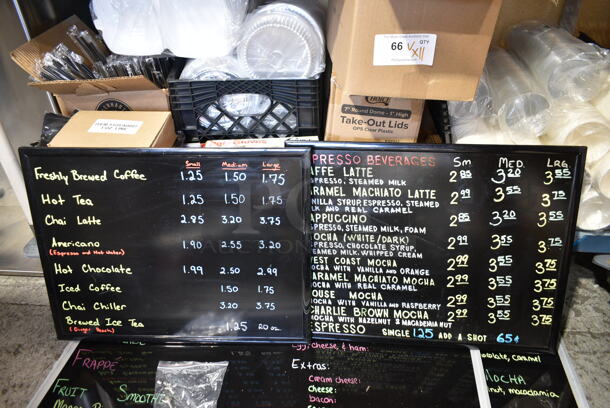 66
QTY
X11
7" Round Dome - 1" High
Take-Out Lids
OPS Clear Plastic
Small Medium Large
Freshly Brewed Coffee 1.25 1.50 1.75
Hot Tea 1.25 1.50 1.75
Chai Latte 2.85 3.20 3.75
Americano 1.90 2.55 3.20
(Espresso and Hot Water)
Hot Chocolate 1.99 2.50 2.99
Iced Coffee 1.50 1.75
Chai Chiller 3.20 3.75
Brewed Ice Tea 1.25 20 oz.
(Ginger Peach)
PRESSO BEVERAGES Sm MED. LRG.
AFFE LATTE 2.85 3.20 3.55
SPRESSO, STEAMED MILK
ARAMEL MACHIATO LATTE 2.99 3.55 3.75
NILLA SYRUP, ESPRESSO, STEAMED
LK AND REAL CARAMEL
APPUCCINO 2.85 3.20 3.55
SPRESSO, STEAMED MILK, FOAM
OCHA (WHITE/DARK) 2.99 3.55 3.75
SPRESSO, CHOCOLATE SYRUP,
TEAMED MILK, WHIPPED CREAM
EST COAST MOCHA 2.99 3.55 3.75
OCHA WITH VANILLA AND ORANGE
ARAMEL MACHIATO MOCHA 2.99 3.55 3.75
OCHA WITH REAL CARAMEL
OUSE MOCHA 2.99 3.55 3.75
OCHA WITH VANILLA AND RASPBERRY
HARLIE BROWN MOCHA 2.99 3.55 3.75
OCHA WITH HAZELNUT & MACADEMIA NUT
ESPRESSO SINGLE 1.25 ADD A SHOT 65¢
egg, cheese, & ham:
FRAPPÉ
Extras:
cream cheese:
cheese:
bacon:
FRUIT SMOOTH
olate, caramel
MOCHA
nut, macadamia